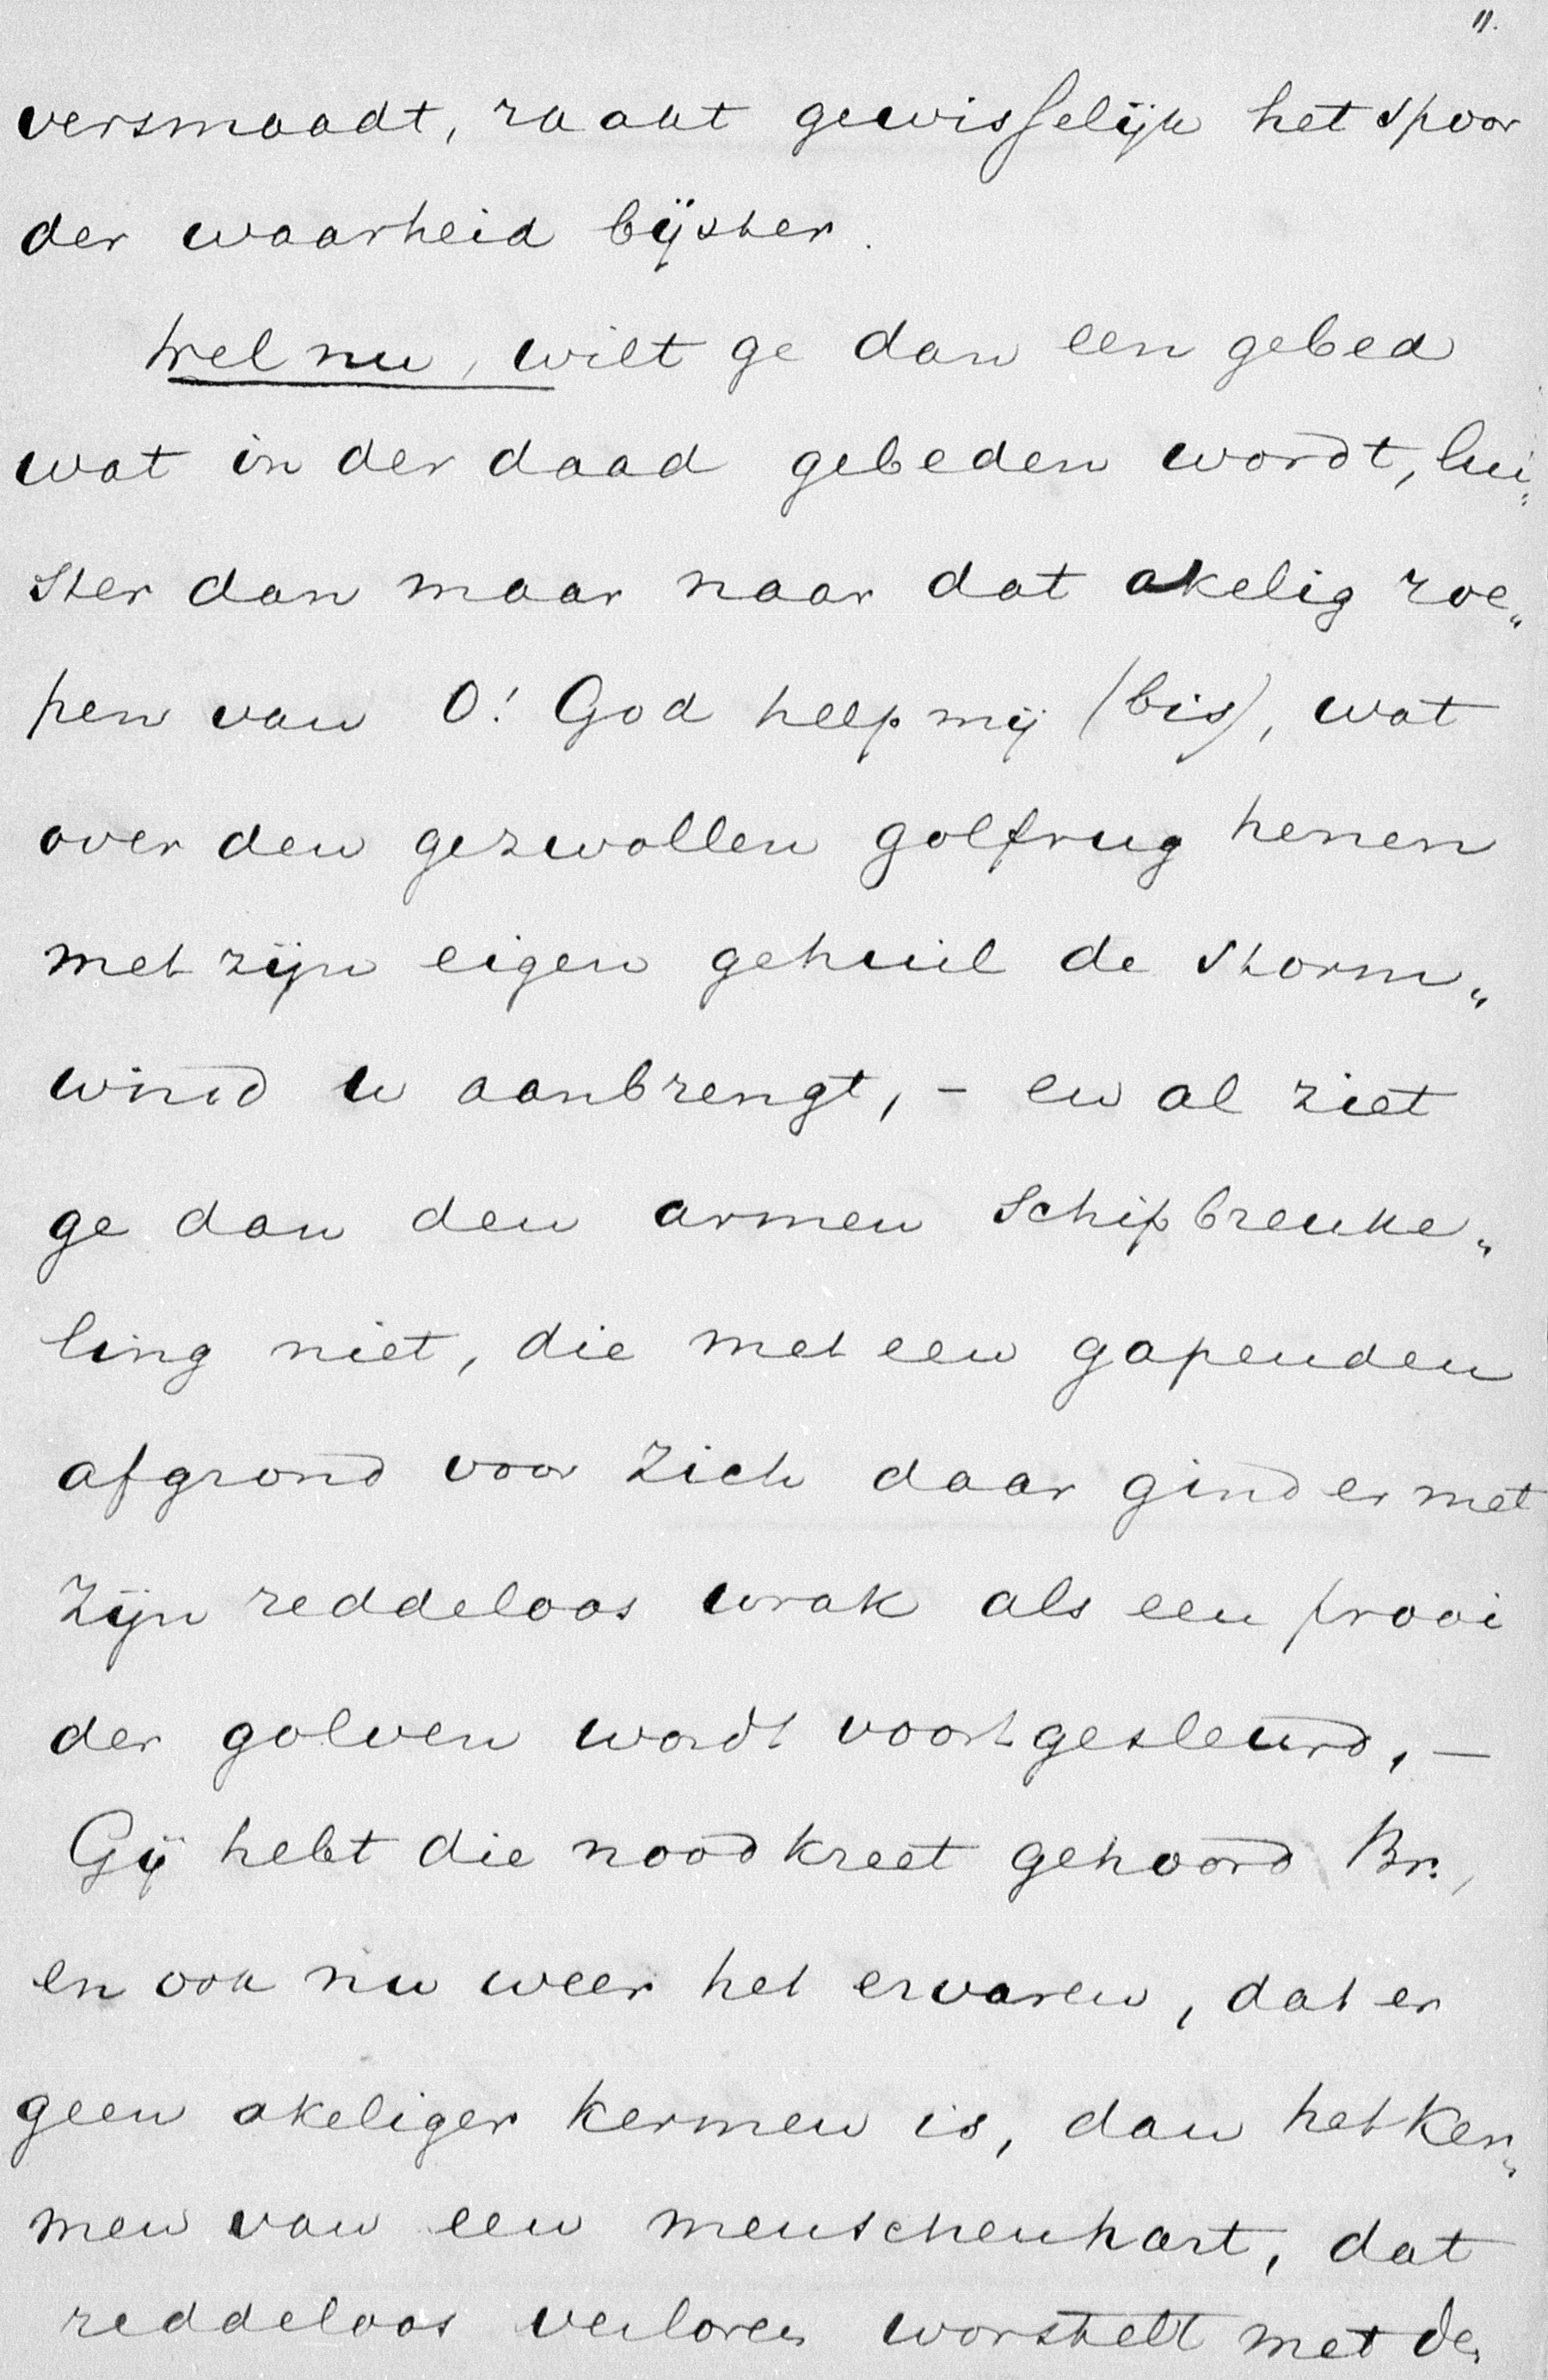 11.
versmaadt, raakt gewisselijk het spoor
der waarheid bijster.
Wel nu, wilt ge dan een gebed
wat in der daad gebeden wordt, lui„
ster dan maar naar dat akelig roe„
pen van O! God help mij (bis), wat
over den gezwollen golfrug henen
met zijn eigen gehuil de storm„
wind u aanbrengt, - en al ziet
ge dan den armen schipbreuke„
ling niet, die met een gapenden
afgrond voor zich daar ginder met
zijn reddeloos wrak als een prooi
der golven wordt voortgesleurd, —
Gij hebt die noodkreet gehoord Br.,
en ook nu weer het ervaren, dat er
geen akeliger kermen is, dan het ker„
men van een menschenhart, dat
reddeloos verloren worstelt met de